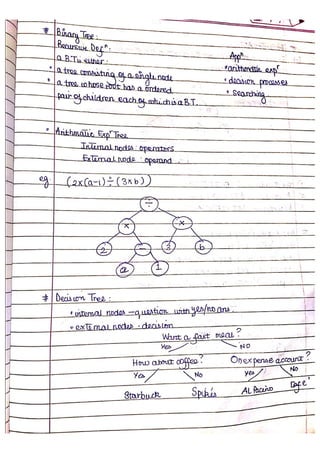 * Binary Tree :
Recursive Defn.
Appn
a B.T is either :
• arithmetic expr
• a tree consisting of a single node
• decision processes
• a tree whose root has a ordered
• Searching
pair of children each of which is a B.T.
• Arithmatic Expr Tree
Internal nodes : operators
External node : operand
eg (2×(a-1)÷(3×b))
÷
× ×
2 − 3 b
a 1
* Decision Tree :
• internal nodes – question with yes/no ans.
• external nodes : decision
Want a fast meal?
Yes NO
How about coffee? On expense account?
Yes No Yes NO
Starbuck Spike's Al Pacino Cafe'